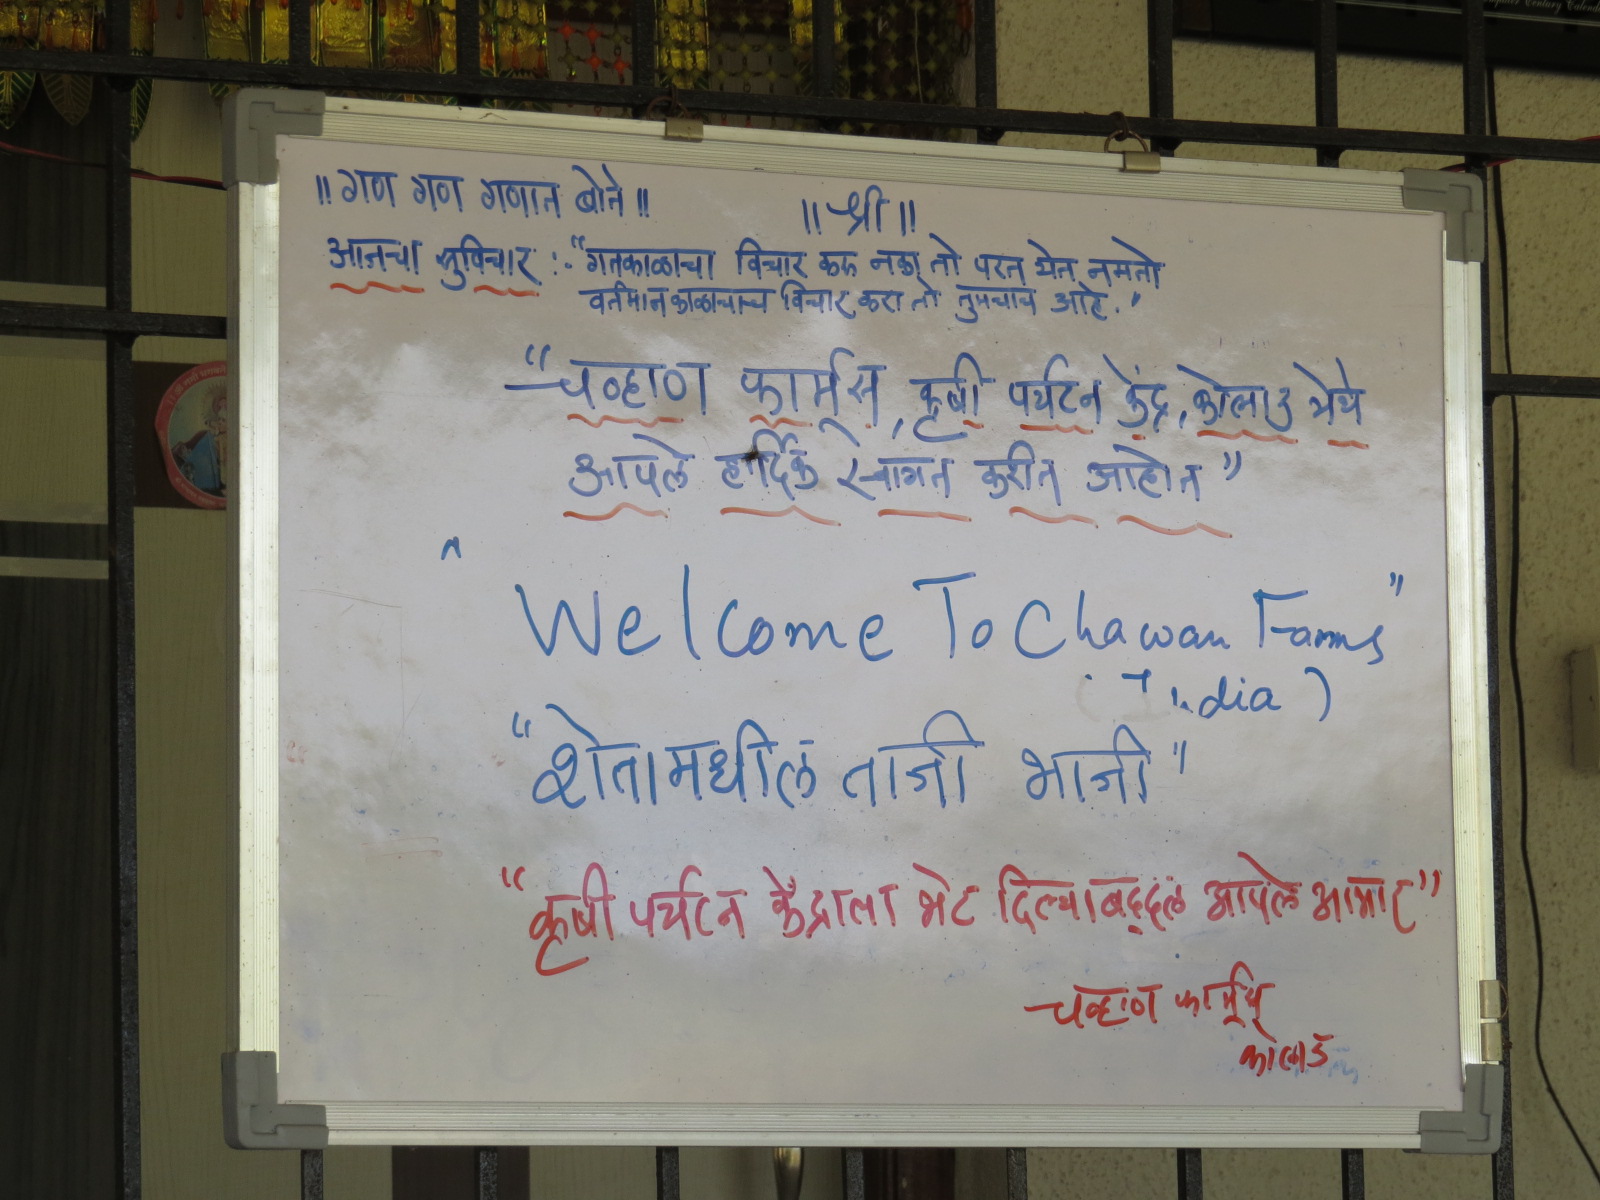 ॥ गण गण गणात बोते ॥
॥ श्री ॥
आजचा सुविचार :- "गतकाळाचा विचार करू नका तो परत येत नसतो
वर्तमानकाळाचाच विचार करा तो तुमचाच आहे."
"चव्हाण फार्म्स, कृषी पर्यटन केंद्र, कोलाड येथे
आपले हार्दिक स्वागत करीत आहोत"
" Welcome To Chawan Farms"
(India)
"शेतामधील ताजी भाजी"
"कृषी पर्यटन केंद्राला भेट दिल्याबद्दल आपले आभार"
चव्हाण फार्म्स
कोलाड
Century